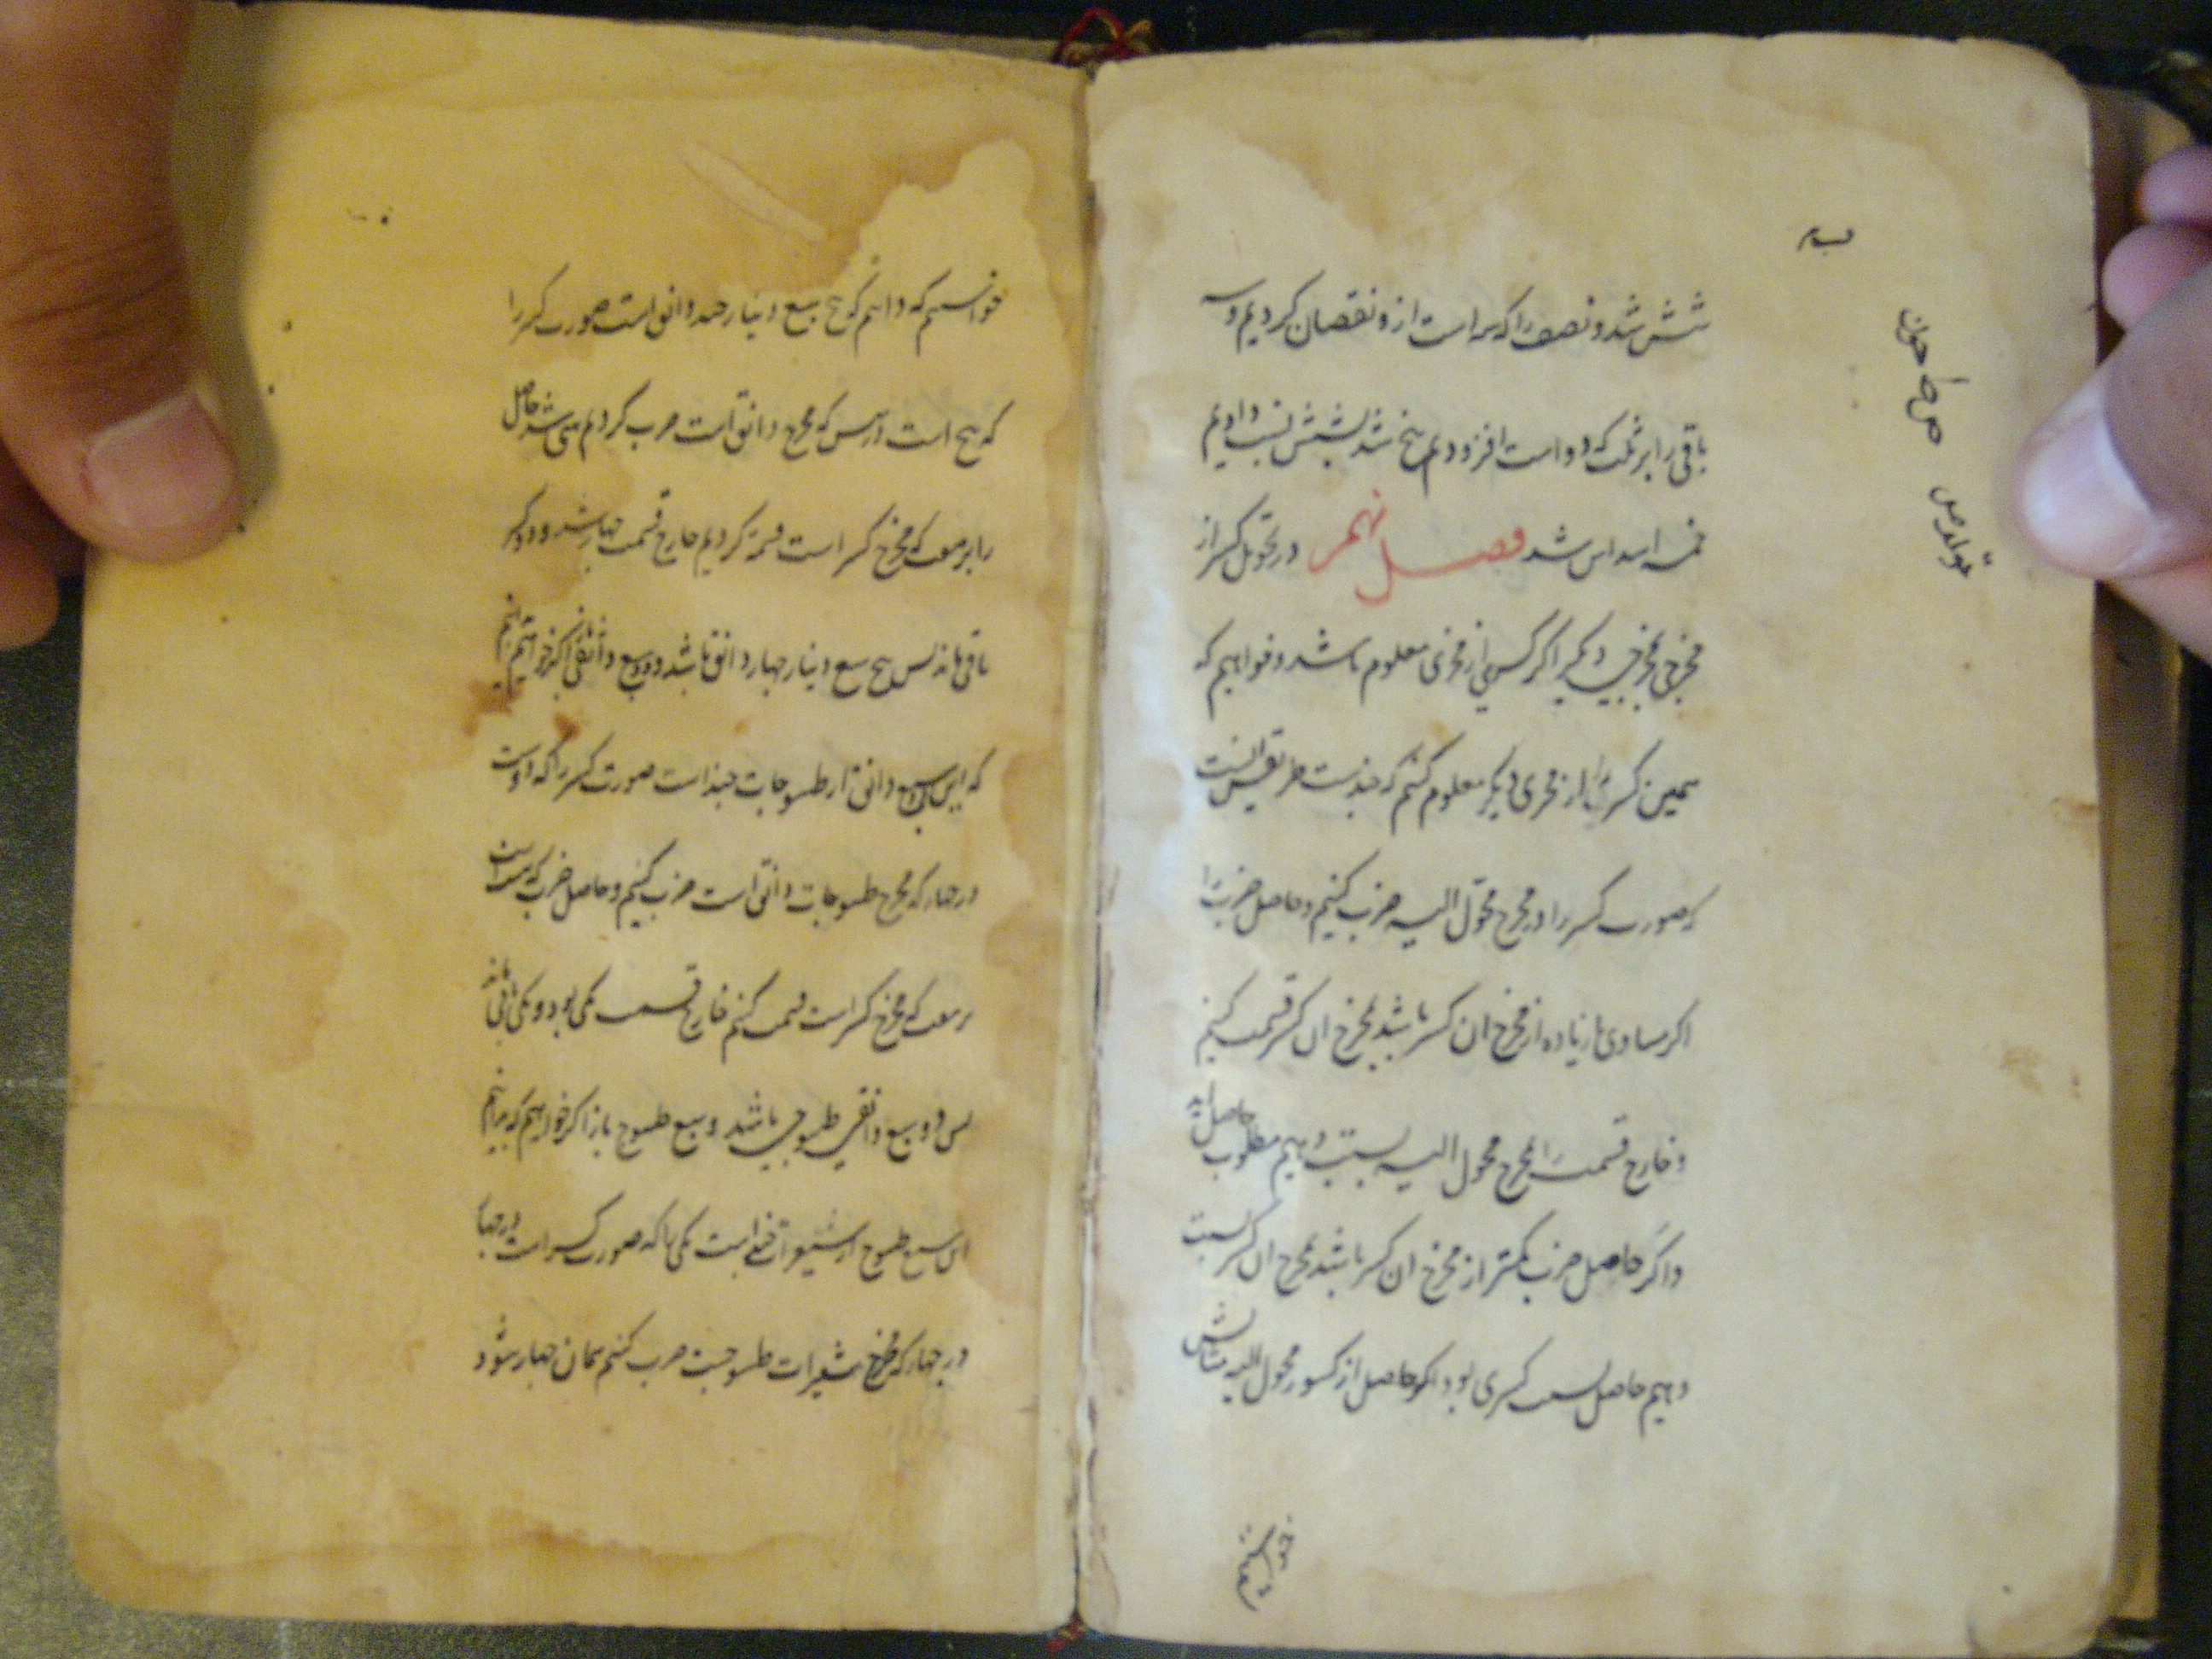 شش شد و نصف را که سه است ازو نقصان کردیم و سه
باقی را بر ثلث که دو است افزودیم پنج شد بشش نسبت دادیم
خمسه اسداس شد فصل نهم در تحویل کسر از
مخرجی بمخرجی دیگر اگر کسری از مخرجی معلوم باشد و خواهیم که
همین کسر را از مخرجی دیگر معلوم کنیم که چندست طریقش آنست
که صورت کسر را در مخرج محول الیه ضرب کنیم و حاصل ضرب را
اگر مساوی یا زیاده از مخرج ان کسر باشد بمخرج ان کسر قسمت کنیم
و خارج قسمت را بمخرج محول الیه نسبت دهیم مطلوب حاصل آید
و اگر حاصل ضرب کمتر از مخرج ان کسر باشد بمخرج ان کسر نسبت
دهیم حاصل نسبت کسری بود از کسور محول الیه مثالش
خواستیم که دانیم که پنج سبع دینار چند دانق است صورت کسر را
که پنج است در شش که مخرج دانق است ضرب کردیم سی شد حاصل
را بر سبعه که مخرج کسر است قسمت کردیم خارج قسمت چهار شد و دو دیگر
باقی ماند پس پنج سبع دینار چهار دانق باشد و دو سبع دانقی اگر خواهیم دانیم
که این دو سبع دانق از طسوجات چند است صورت کسر را که دوست
در چهار که مخرج طسوجات دانق است ضرب کنیم و حاصل ضرب که هشت است
بر سبعه که مخرج کسر است قسمت کنیم خارج قسمت یکی بود و یکی باقی ماند
پس دو سبع دانقی طسوجی باشد و سبع طسوج باز اگر خواهیم که بدانیم
این سبع طسوج از شعیرات چند است یکی را که صورت کسر است در چهار
در چهار که مخرج شعیرات طسوجست ضرب کنیم همان چهار شود